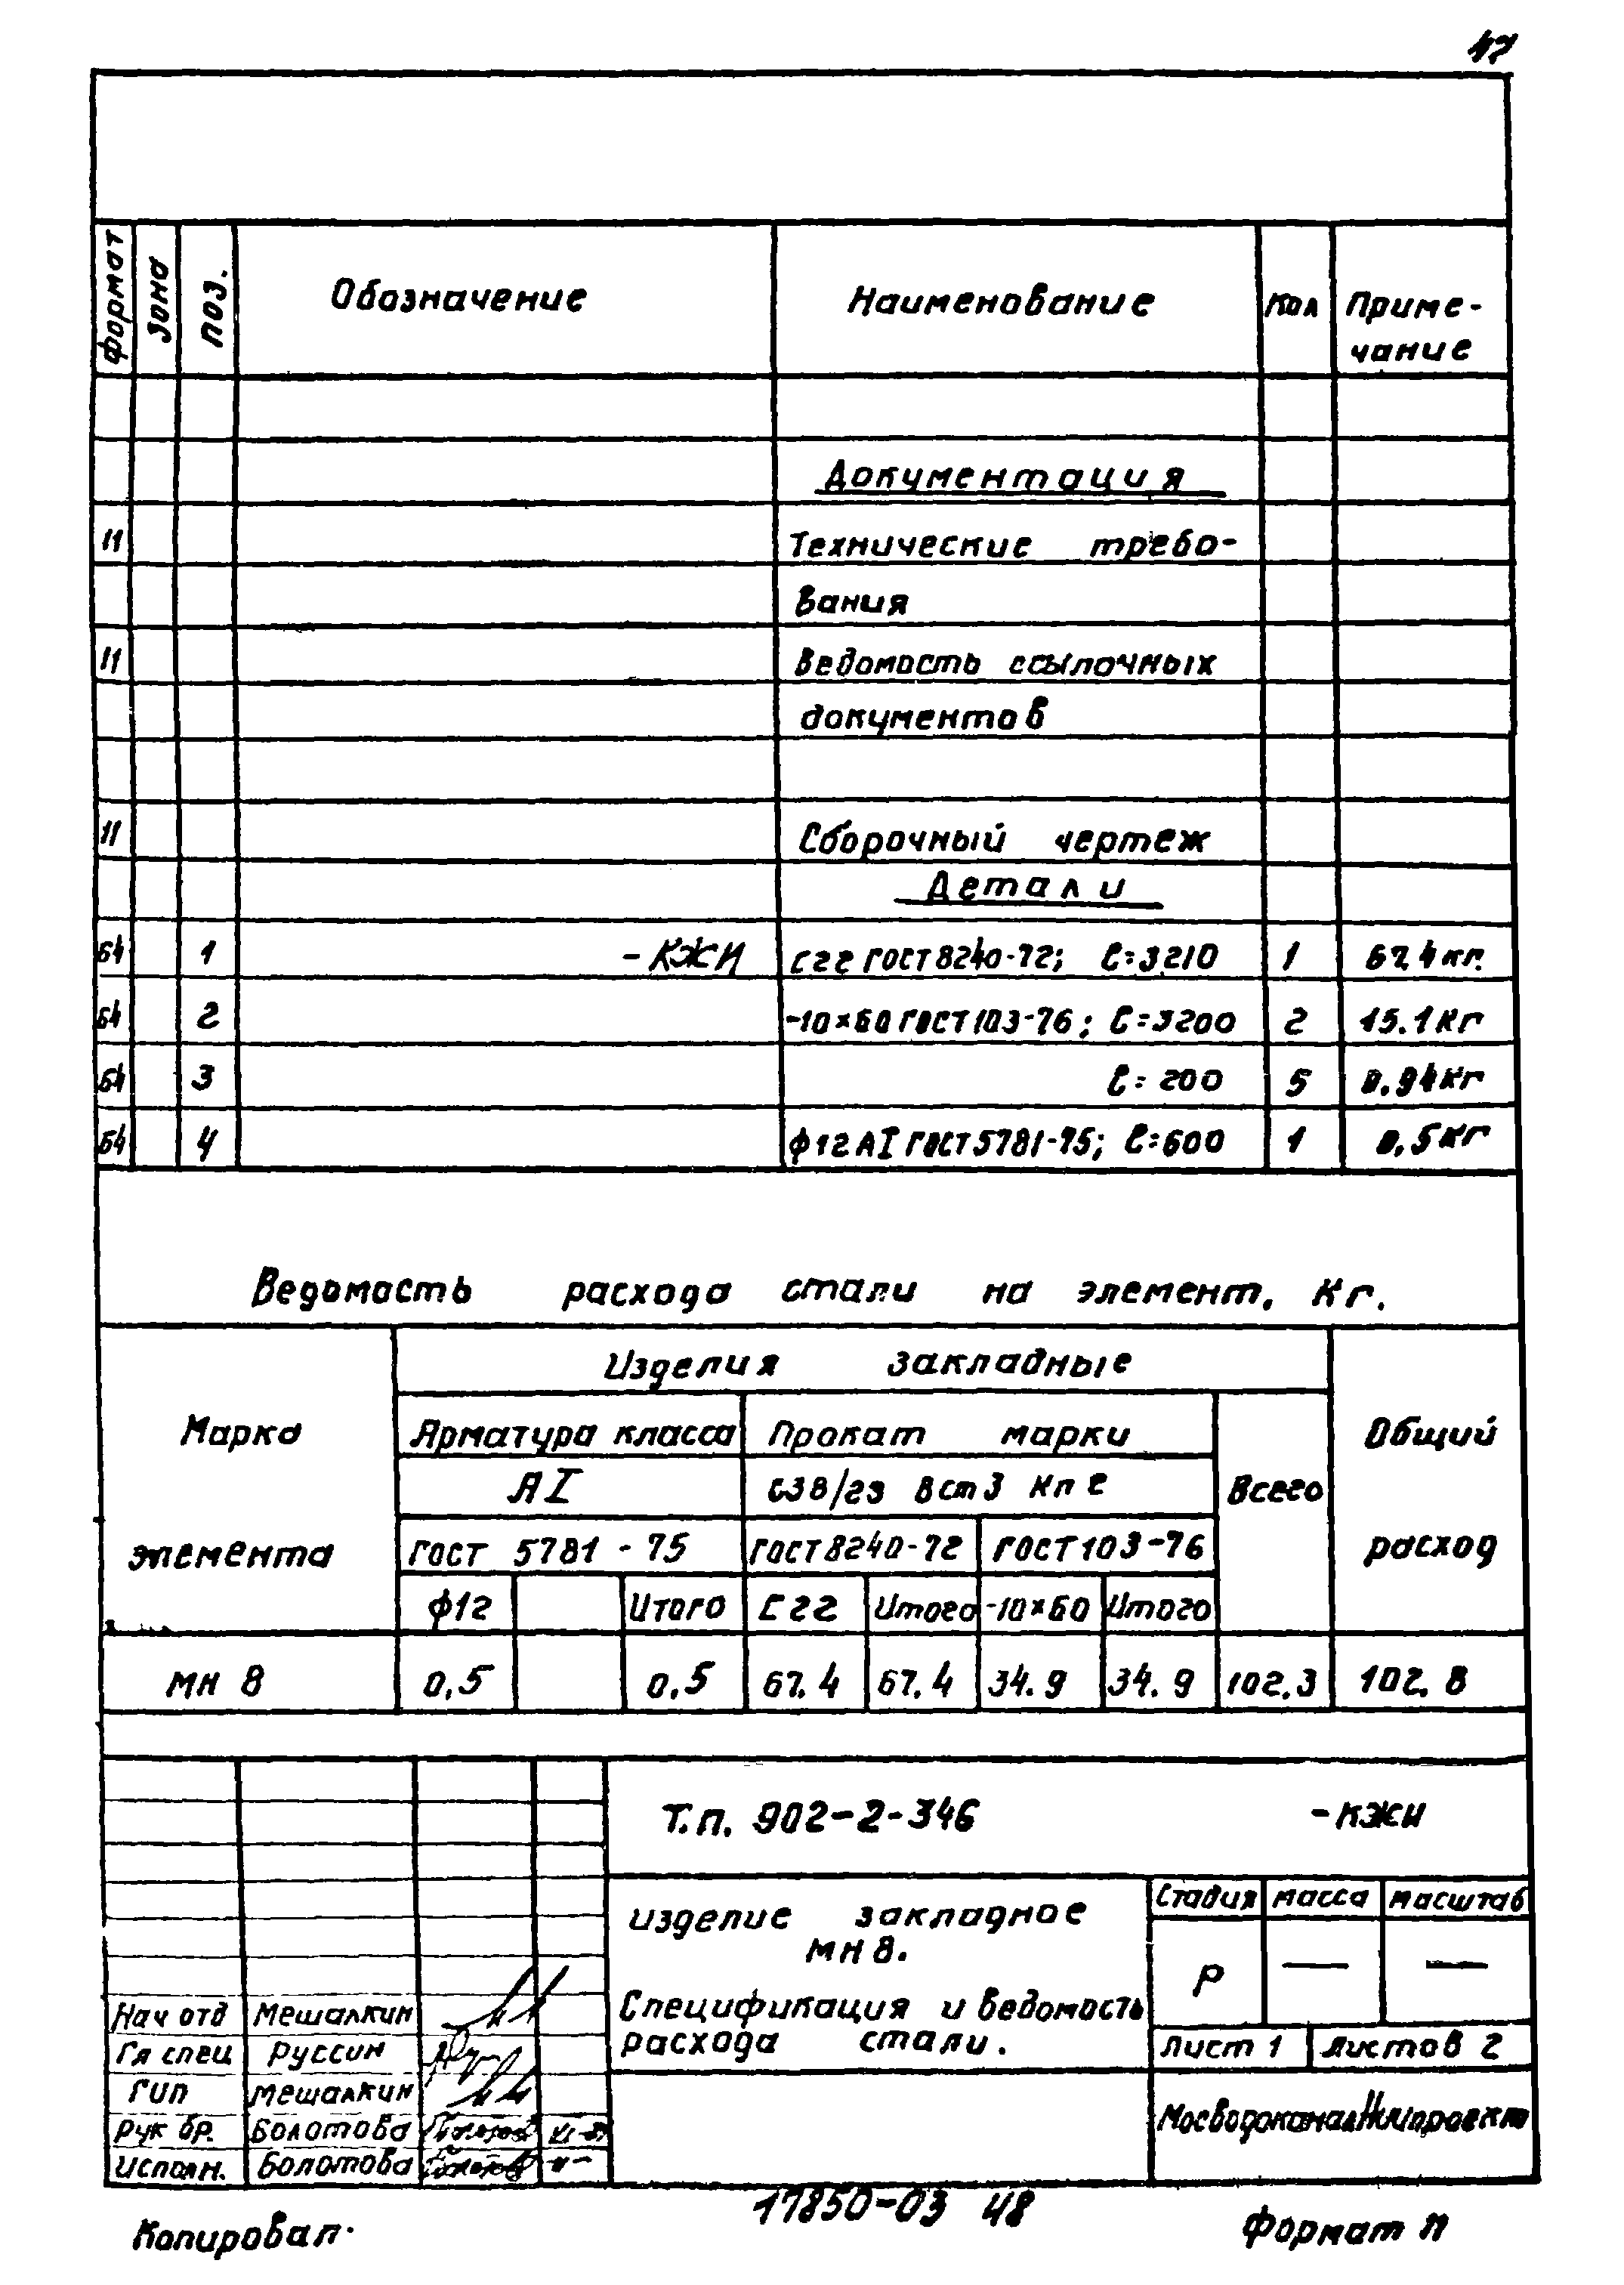 47
Формат Зона Поз. Обозначение Наименование Кол Приме-
чание
Документация
11 Технические требо-
вания
11 Ведомость ссылочных
документов
11 Сборочный чертеж
Детали
Б4 1 -КЖИ С22 ГОСТ 8240-72; ℓ=3210 1 67.4 кг.
Б4 2 -10×60 ГОСТ 103-76; ℓ=3200 2 15.1 кг
Б4 3 ℓ=200 5 0.94 кг
Б4 4 ф12 АI ГОСТ 5781-75; ℓ=600 1 0,5 кг
Ведомость расхода стали на элемент, кг.
Марка элемента Изделия закладные Общий расход
Арматура класса Прокат марки Всего
АI С38/23 Вст3 кп 2
ГОСТ 5781-75 ГОСТ 8240-72 ГОСТ 103-76
ф12 Итого С22 Итого -10×60 Итого
МН 8 0,5 0,5 67.4 67.4 34.9 34.9 102,3 102.8
Т.П. 902-2-346 -КЖИ
изделие закладное
МН 8.
Стадия масса масштаб
Р — —
Спецификация и ведомость
расхода стали.
Лист 1 Листов 2
Нач отд Мешалкин
Гл спец Руссин
ГИП Мешалкин
Рук бр. Болотова
Исполн. Болотова
МосводоканалНИИпроект
Копировал.
17850-03 48
Формат 11